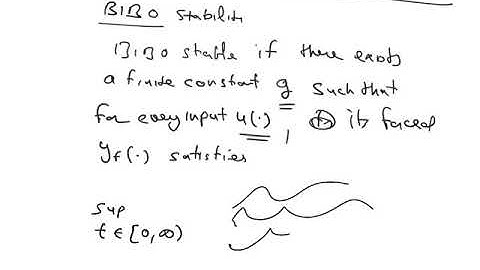 BIBO stability
BIBO stable if there exists
a finite constant g such that
for every input u(·), its forced
y_f(·) satisfies
sup
t ∈ [0, ∞)